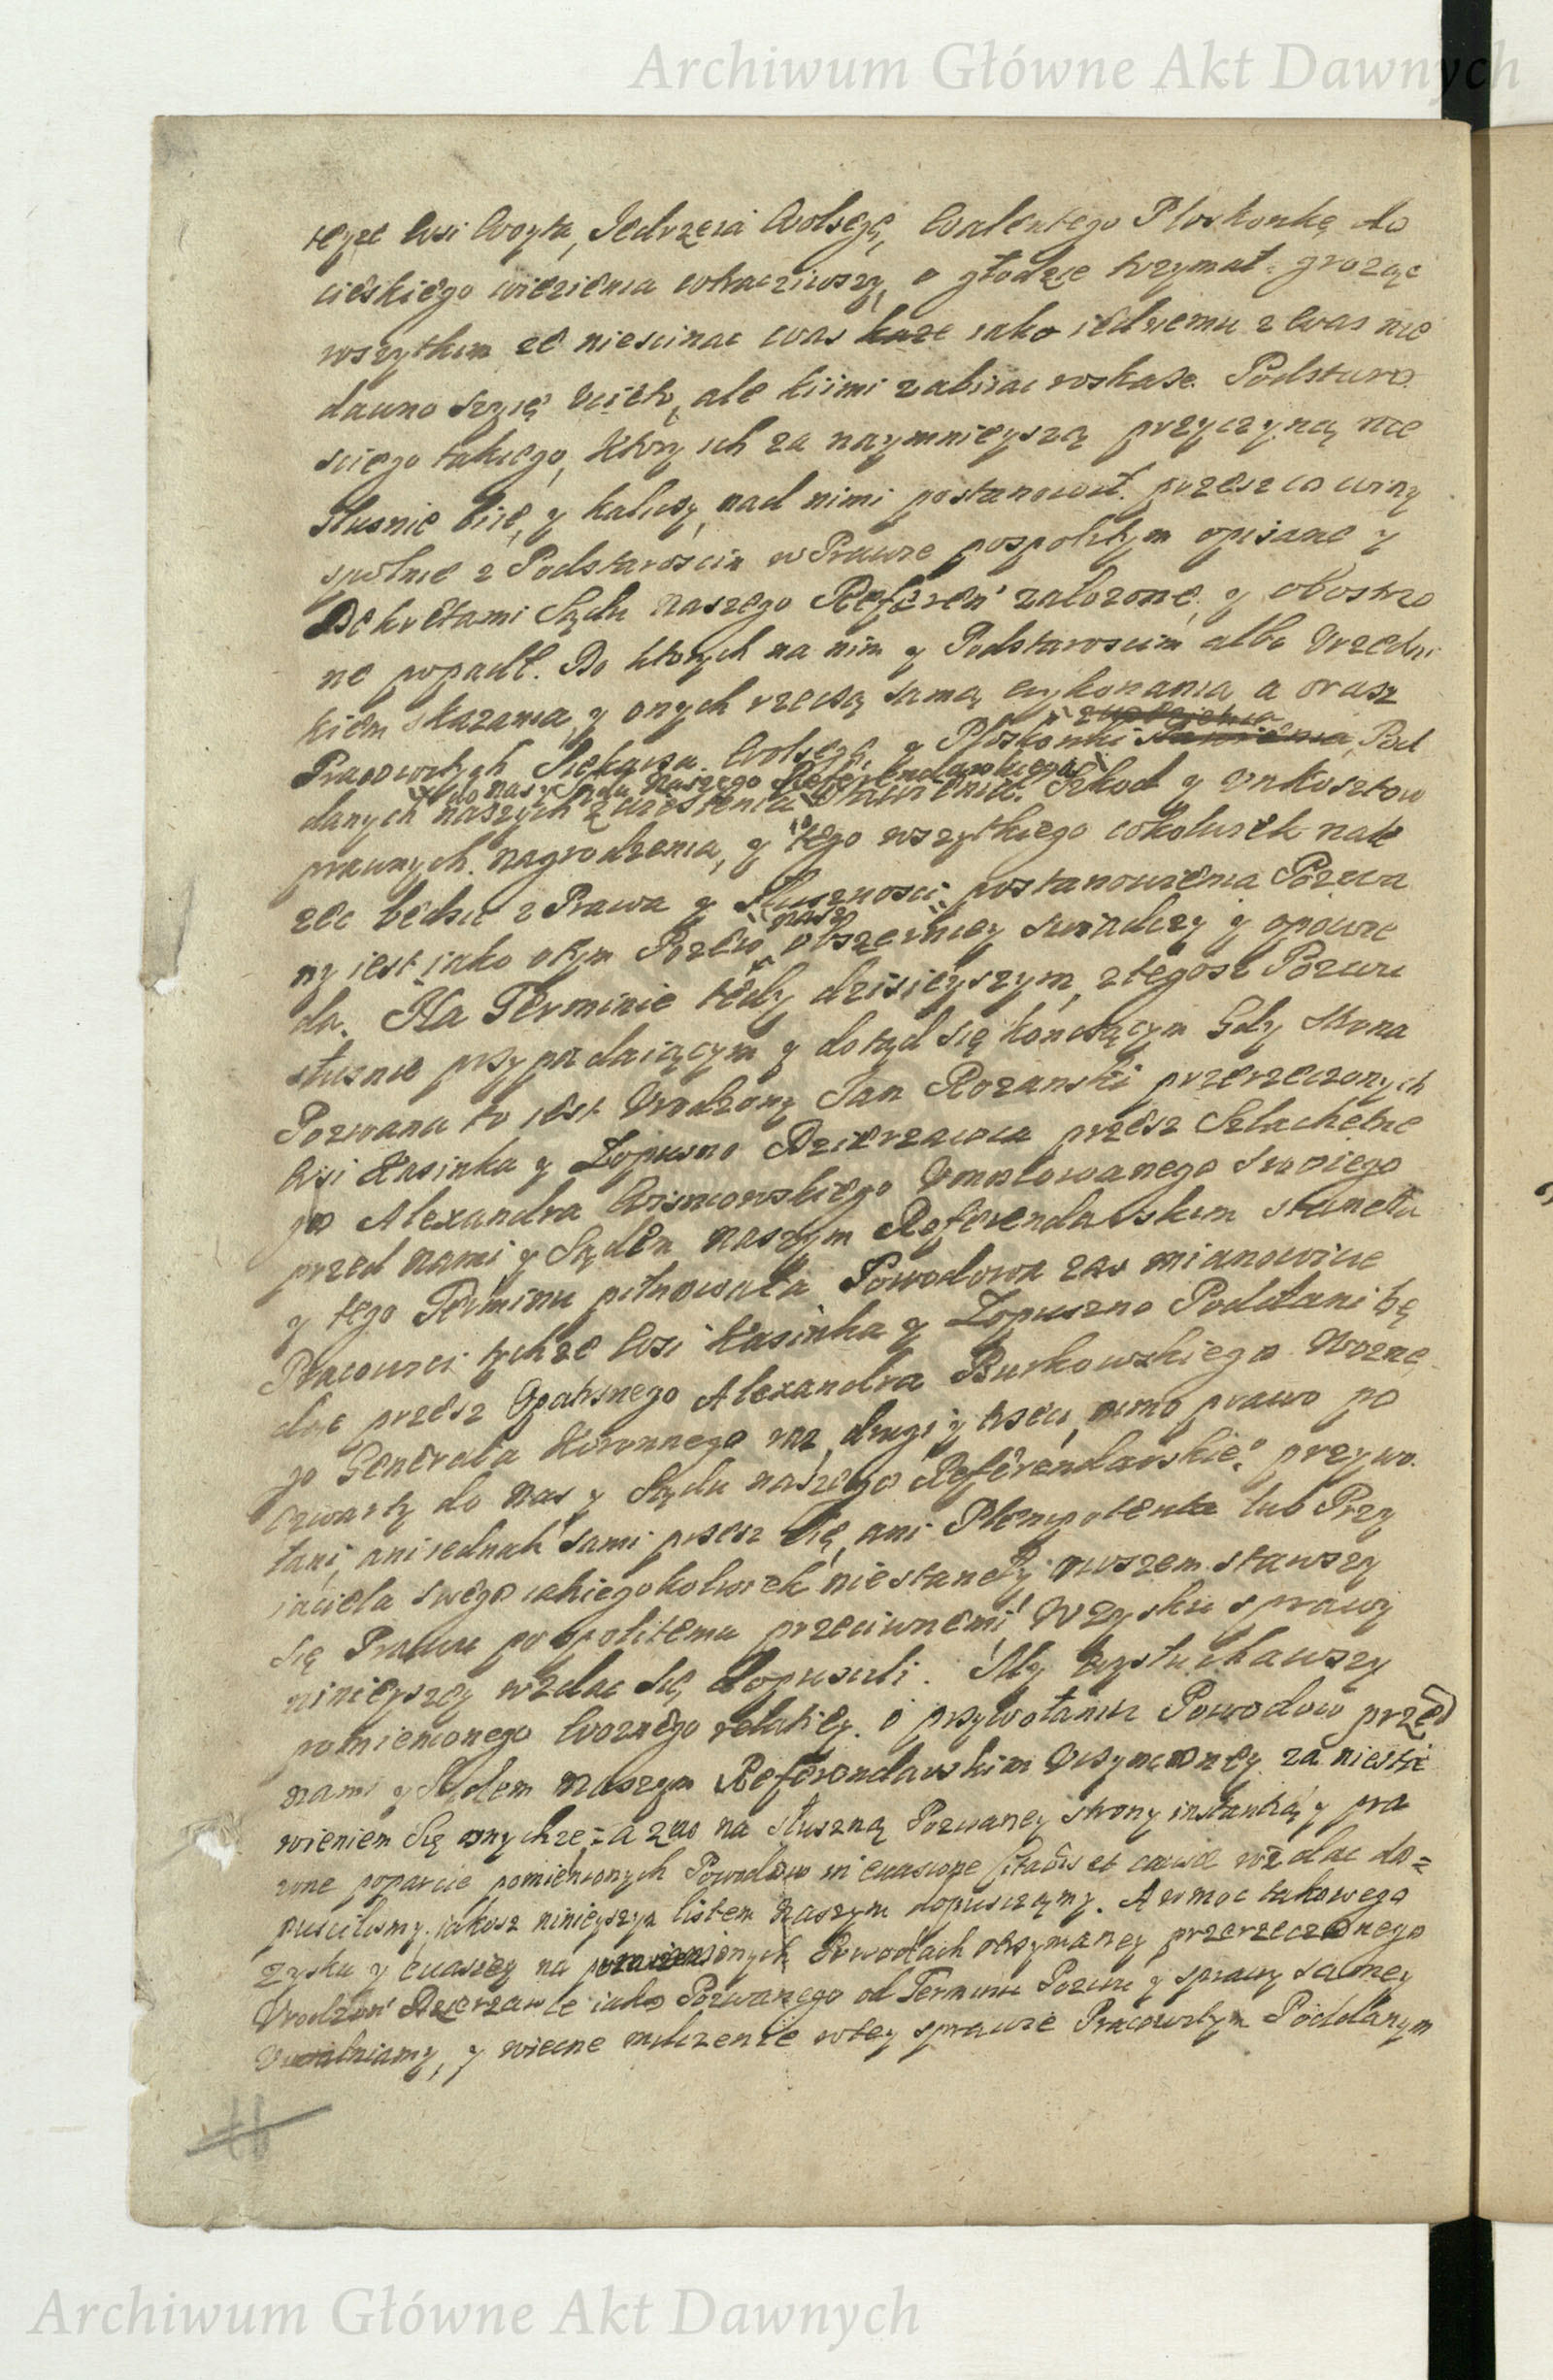 Archiwum Główne Akt Dawnych
teyze Wsi Woyta, Jedrzeia Wolsęgę, Walentego Ploskonkę do
cieskiego wiezienia wtraciwszy, o głodzie trzymał: grożąc
wszytkim ze niescinac was kaze iako iednemu z Was nie
dawno szyię ucięto, ale kiimi zabiiac roskaże. Podstaro
sciego takiego, który ich za naymnieyszą przyczyną nie
slusnie biie, y kaliczy, nad nimi postanowił. przesz co winy
spolnie z Podstaroscim w Prawie pospolitym opisane y
Dekretami Sądu naszego Referen' założone, y obostrzo
ne popadł. Do ktorych na nim y Podstaroscim albo Vrzedni
kiem skazania, y onych rzeczą samą wykonania a orasz
Pracowitych Wolsęgę, y Ploskonki Pod
do nas y Sądu naszego Referendarskiego
danych naszych Szkod y wnkosztow
prawnych nagrodzenia, y tego wszytkiego cokolwiek nale
zec będzie z Prawa y słusznosci postanowienia Pozwa
nasz
ny iest iako o tym Pozew obszerniey swiadczy y opowie
da. Na Terminie tedy dzisieyszym, z tegosz Pozwu
słusnie przypadaiącym y dotąd się konczącym Gdy strona
Pozwana to iest Vrodzony Jan Rozanski przerzeczonych
Wsi Kasinka y Lopuszno Dzierzawca przesz Szlachetne
go Alexandra Wisniowskiego Vmocowanego swoiego
przed nami y Sądem naszym Referendarskim staneła
y tego Terminu pilnowała Powodowa zas mianowicie
Pracowici tychze Wsi Kasinka y Lopuszno Poddani bę
dąc przesz Opatrznego Alexandra Burkowskiego Wozne
go Generała Koronnego raz, drugi y trzeci, mimo prawo po
czwarty do nas y Sądu naszego Referendarskie° przywo
łani, ani iednak sami przesz się, ani Plenipotenta lub Przy
iaciela swego iakiegokolwiek niestaneli, owszem stawszy
się Prawu pospolitemu przeciwnemi W Zysku sprawy
ninieyszey wzdac się dopuscili. My wysłuchawszy
pomienionego Woznego relatiey o przywołaniu Powodow przed
nami y Sądem naszym Referendarskim uczynioney za niesta
wieniem się onychze: a zas na słuszną Pozwaney strony instantią y pra
wne poparcie pomienionych Powodow causae wzdac do=
puscilismy, iakosz ninieyszym listem naszym dopuszczamy. A w moc takowego
Zysku y ewasiey na pomienionych Powodach otrzymaney przerzeczonego
Vrodzon' Dzierzawce iako Pozwanego od Terminu Pozwu y sprawy samey
Vwalniamy, y wieczne milczenie w tey sprawie Pracowitym Poddanym
Archiwum Główne Akt Dawnych